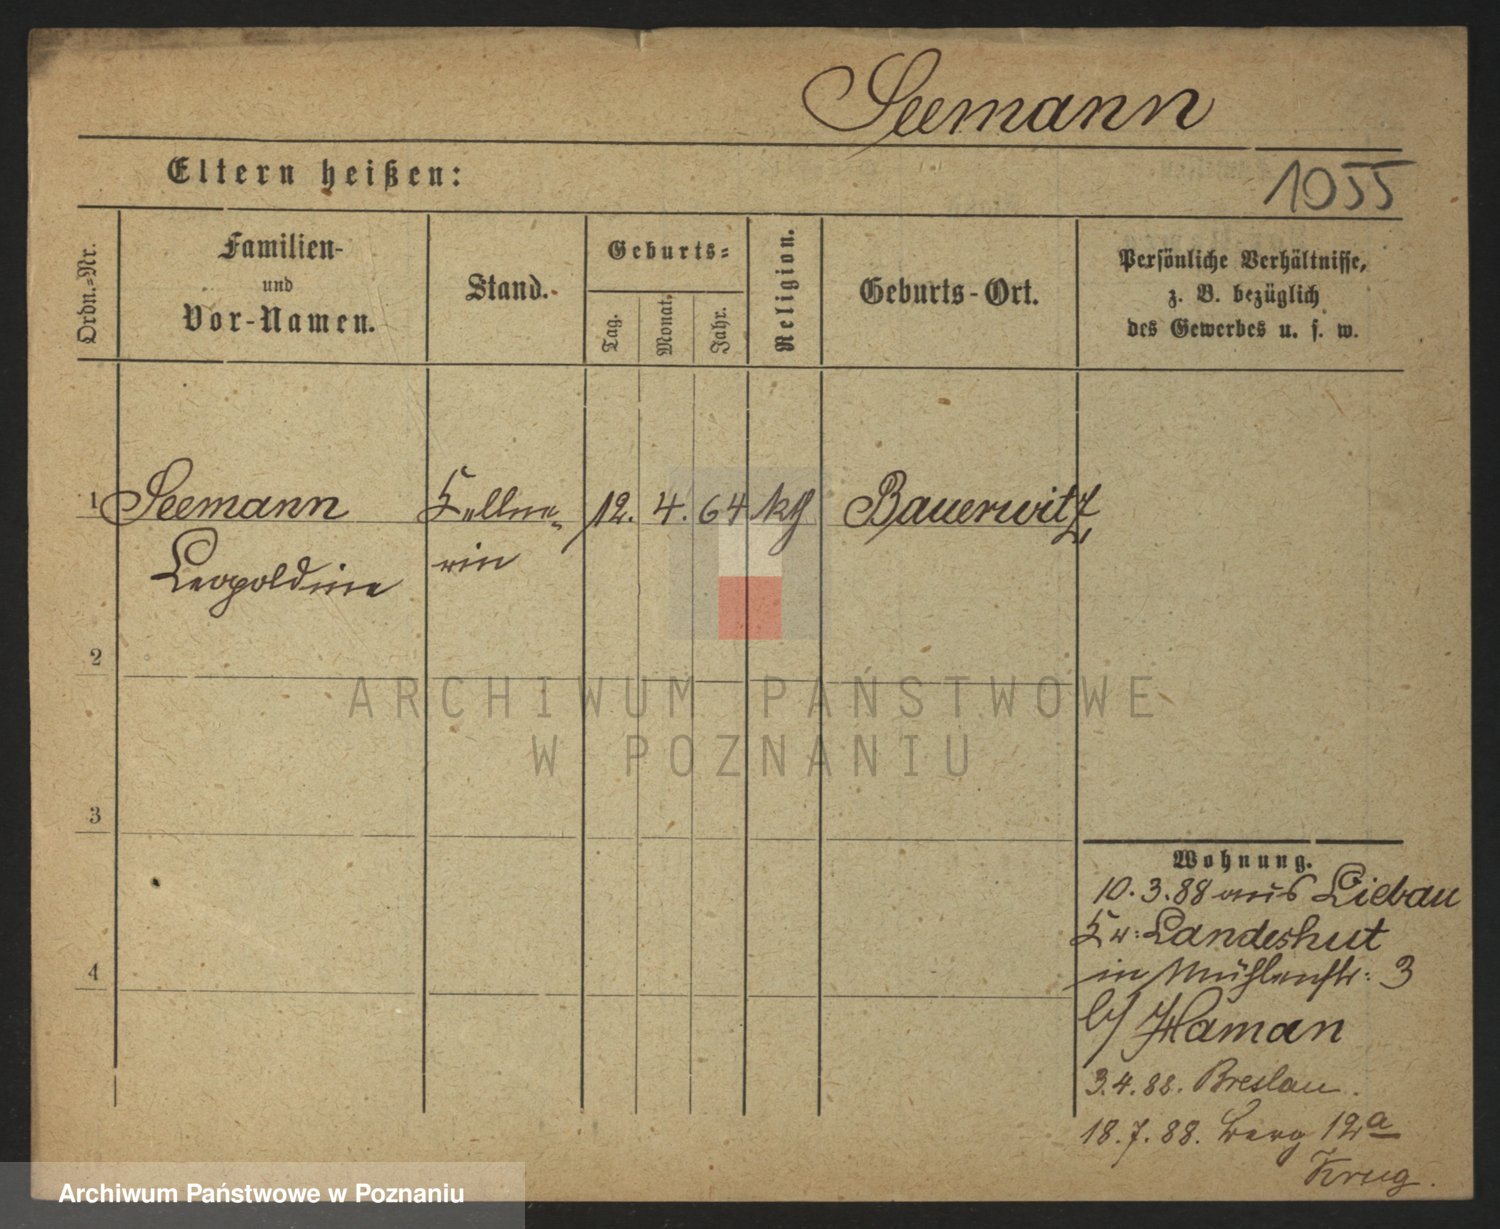 Seemann
Eltern heißen:
1055
Ordn.-Nr.
Familien-
und
Vor-Namen.
Stand.
Geburts-
Tag.
Monat.
Jahr.
Religion.
Geburts-Ort.
Persönliche Verhältnisse,
z. B. bezüglich
des Gewerbes u. s. w.
1 Seemann Kellne- 12. 4. 64 kth Bauerwitz
Leopoldine rin
2
3
4
Wohnung.
10.3.88 aus Liebau
Kr: Landeshut
in Mühlenstr: 3
b/ Haman
3.4.88. Breslau.
18.7.88. Berg 12a
Krug.
ARCHIWUM PAŃSTWOWE
W POZNANIU
Archiwum Państwowe w Poznaniu